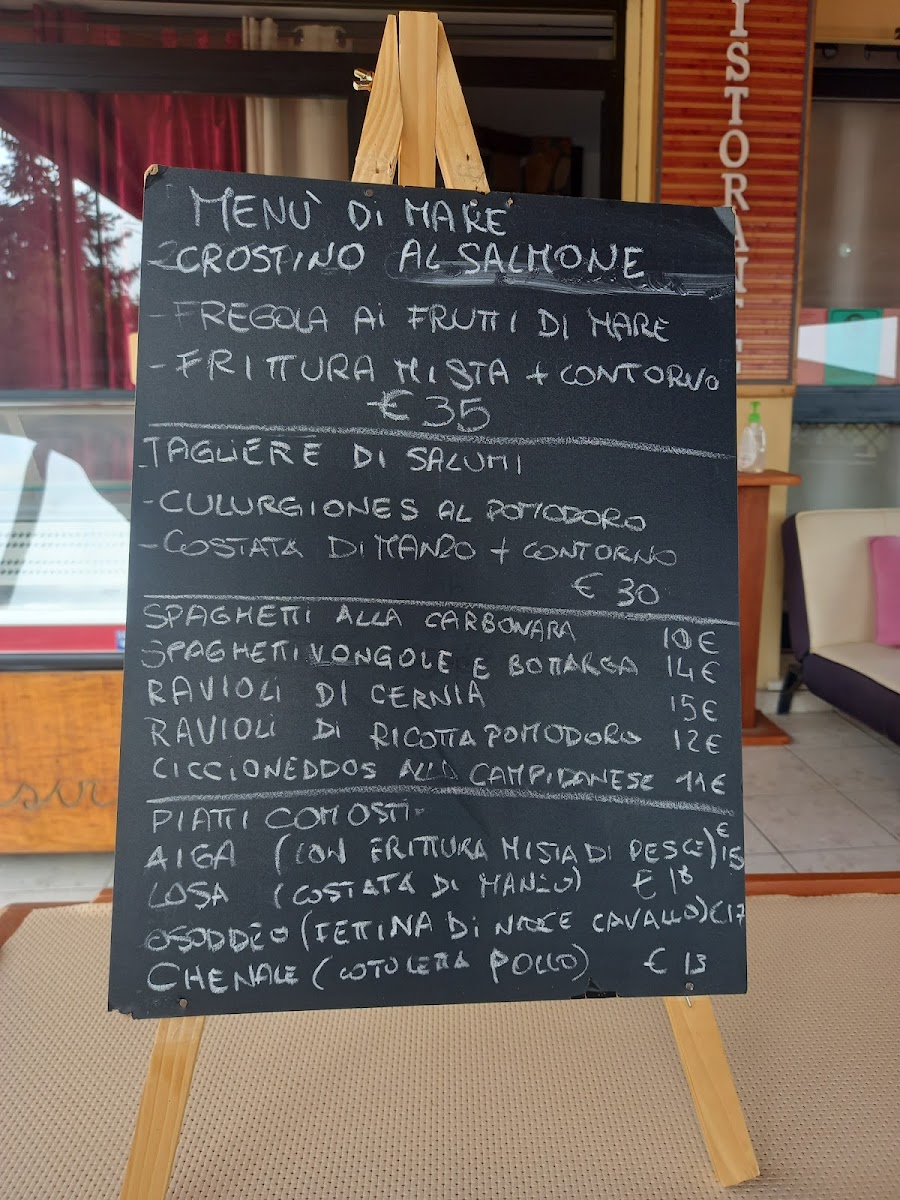 ISTORANTE
MENÙ DI MARE
CROSTINO AL SALMONE
- FREGOLA AI FRUTTI DI MARE
- FRITTURA MISTA + CONTORNO
€ 35
- TAGLIERE DI SALUMI
- CULURGIONES AL POMODORO
- COSTATA DI MANZO + CONTORNO
€ 30
SPAGHETTI ALLA CARBONARA 10€
SPAGHETTI VONGOLE E BOTTARGA 14€
RAVIOLI DI CERNIA 15€
RAVIOLI DI RICOTTA POMODORO 12€
CICCIONEDDOS ALLA CAMPIDANESE 11€
PIATTI COMOSTI
AIGA (CON FRITTURA MISTA DI PESCE) € 15
LOSA (COSTATA DI MANZO) € 18
OSODDEO (FETTINA DI CAVALLO) € 17
CHENALE (COTOLETTA POLLO) € 13